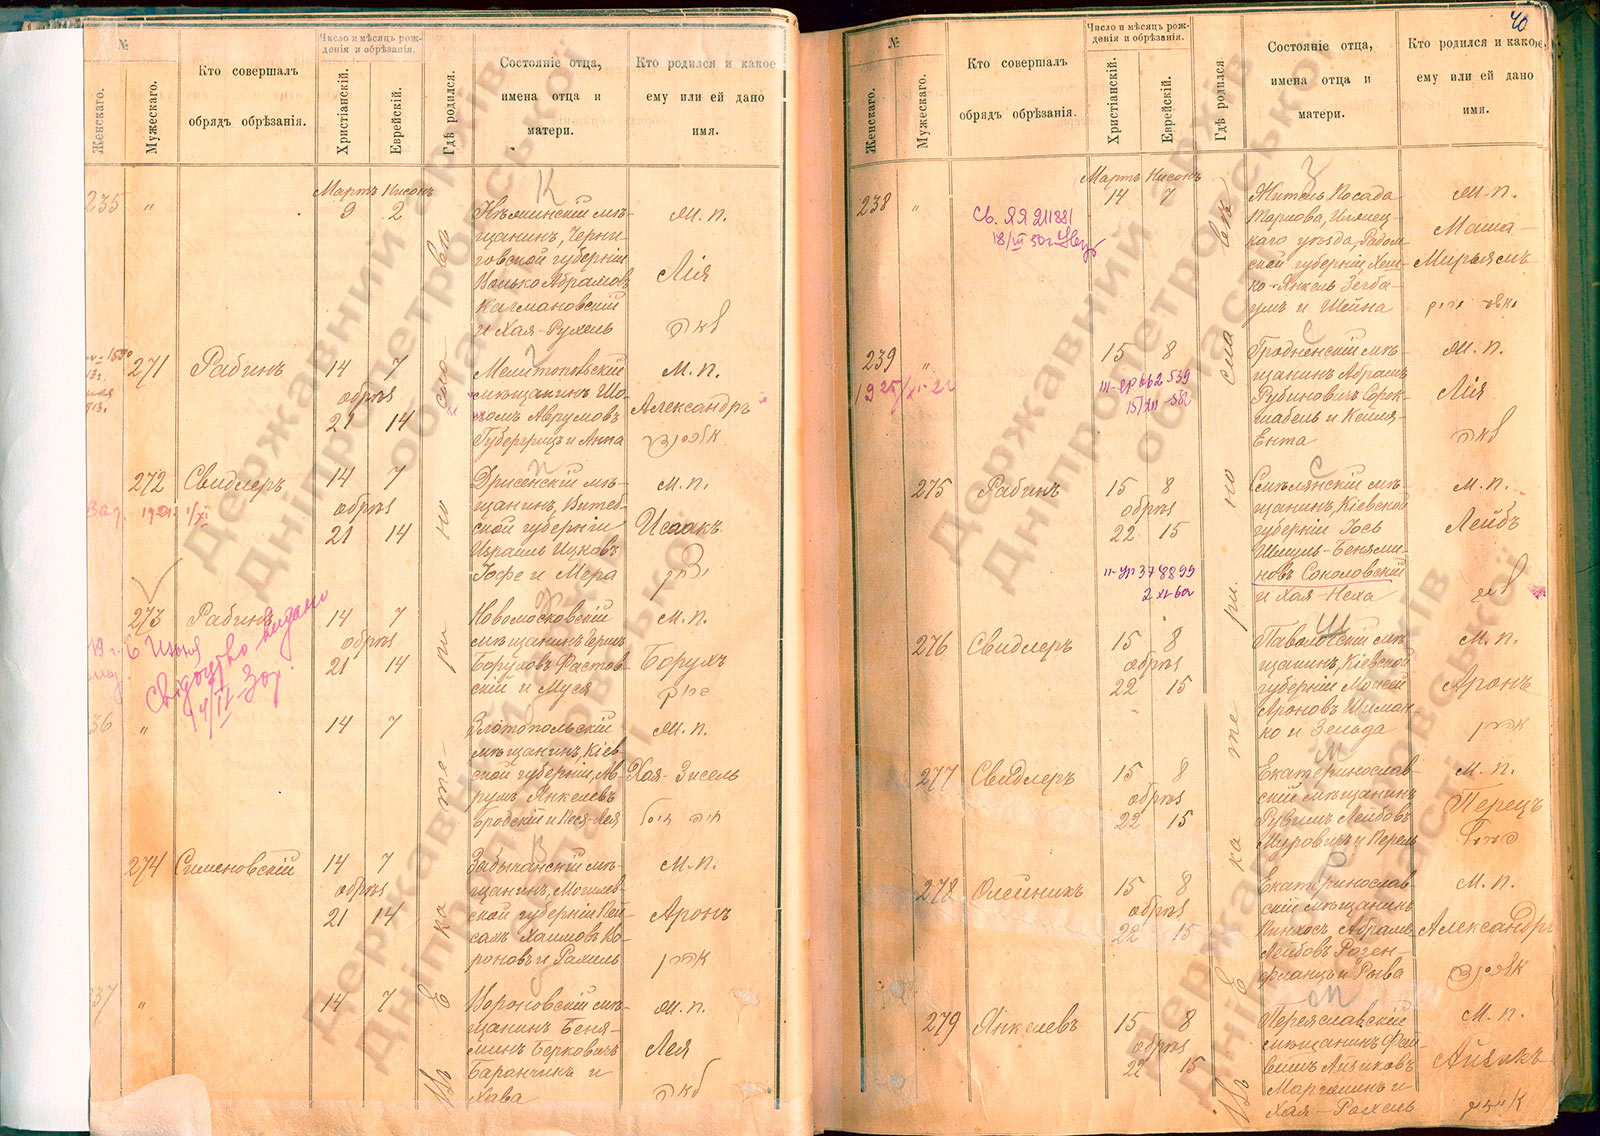 №
Женскаго.
Мужескаго.
Кто совершалъ
обрядъ обрѣзанія.
Число и мѣсяцъ рож-
денія и обрѣзанія.
Христіанскій.
Еврейскій.
Гдѣ родился.
Состояніе отца,
имена отца и
матери.
Кто родился и какое
ему или ей дано
имя.
Мартъ Нисонъ
235 " 9 2
щанинъ, Черни-
говской губерніи
Калмановскій
и Хая-Рухель
М. п.
Лія
לאה
271 Рабинъ 14 7
обрѣз
21 14
Мелитопольскій
мѣщанинъ Шо-
ломъ Аврумовъ
и Анна
М. п.
Александръ
272 Свидлеръ 14 7
обрѣз
21 14
Дрисенскій мѣ-
щанинъ, Витеб-
ской губерніи
Израиль Ицковъ
Іофе и Мера
М. п.
Исаакъ
יצחק
273 Рабинъ 14 7
обрѣз
21 14
Новомосковскій
мѣщанинъ
Боруховъ Фастов-
скій и Муся
М. п.
Борухъ
ברוך
Свідоцтво видано
236 " 14 7
Златопольскій
мѣщанинъ, Кіев-
ской губерніи, Ав-
румъ Янкелевъ
Бродскій и Песя-Лея
М. п.
Хая-Зисель
חיה זיסל
274 Сименовскій 14 7
обрѣз
21 14
щанинъ, Могилев-
ской губерніи Лей-
Хаимовъ Во-
роновъ и Рахиль
М. п.
Аронъ
אהרן
237 " 14 7
Вороновскій мѣ-
щанинъ Беня-
минъ Берковичъ
Баранчикъ и
Хава
М. п.
Лея
לאה
Въ Екатеринославѣ
40
№
Женскаго.
Мужескаго.
Кто совершалъ
обрядъ обрѣзанія.
Число и мѣсяцъ рож-
денія и обрѣзанія.
Христіанскій.
Еврейскій.
Гдѣ родился
Состояніе отца,
имена отца и
матери.
Кто родился и какое
ему или ей дано
имя.
Мартъ Нисонъ
238 " 14 7
Св. ЯЯ 211881
Житель Посада
Тарлова, Илжец-
каго уѣзда, Радом-
ской губерніи, Хаш-
ко-Янкель Зегба-
умъ и Шейна
М. п.
Маша-
Мирьямъ
מאשה מרים
239 " 15 8
Гродненскій мѣ-
щанинъ Абрамъ
Рубиновичъ Сорок-
и Кейля-
Ента
М. п.
Лія
לאה
275 Рабинъ 15 8
обрѣз
22 15
Смѣлянскій мѣ-
щанинъ, Кіевской
губерніи Іось
Шмуль-Бенями-
новъ Соколовскій
и Хая-Неха
М. п.
Лейбъ
ליב
276 Свидлеръ 15 8
обрѣз
22 15
Паволочскій мѣ-
щанинъ, Кіевской
губерніи Моисей
Ароновъ Шиман-
ко и Зельда
М. п.
Аронъ
אהרן
277 Свидлеръ 15 8
обрѣз
22 15
Екатеринослав-
скій мѣщанинъ
Рувимъ Лейбовъ
Муровичъ и Перель
М. п.
Перецъ
פרץ
278 Олейникъ 15 8
обрѣз
22 15
Екатеринослав-
скій мѣщанинъ
Пинхосъ Абрамъ
Лейбовъ Розен-
фланцъ и Рыва
М. п.
Александръ
279 Янкелевъ 15 8
обрѣз
22 15
Переяславскій
мѣщанинъ Фай-
вишъ Айзиковъ
Марголинъ и
Хая-Рахель
М. п.
Айзикъ
אייזיק
Въ Екатеринославѣ
Державний архів
Дніпропетровської
області